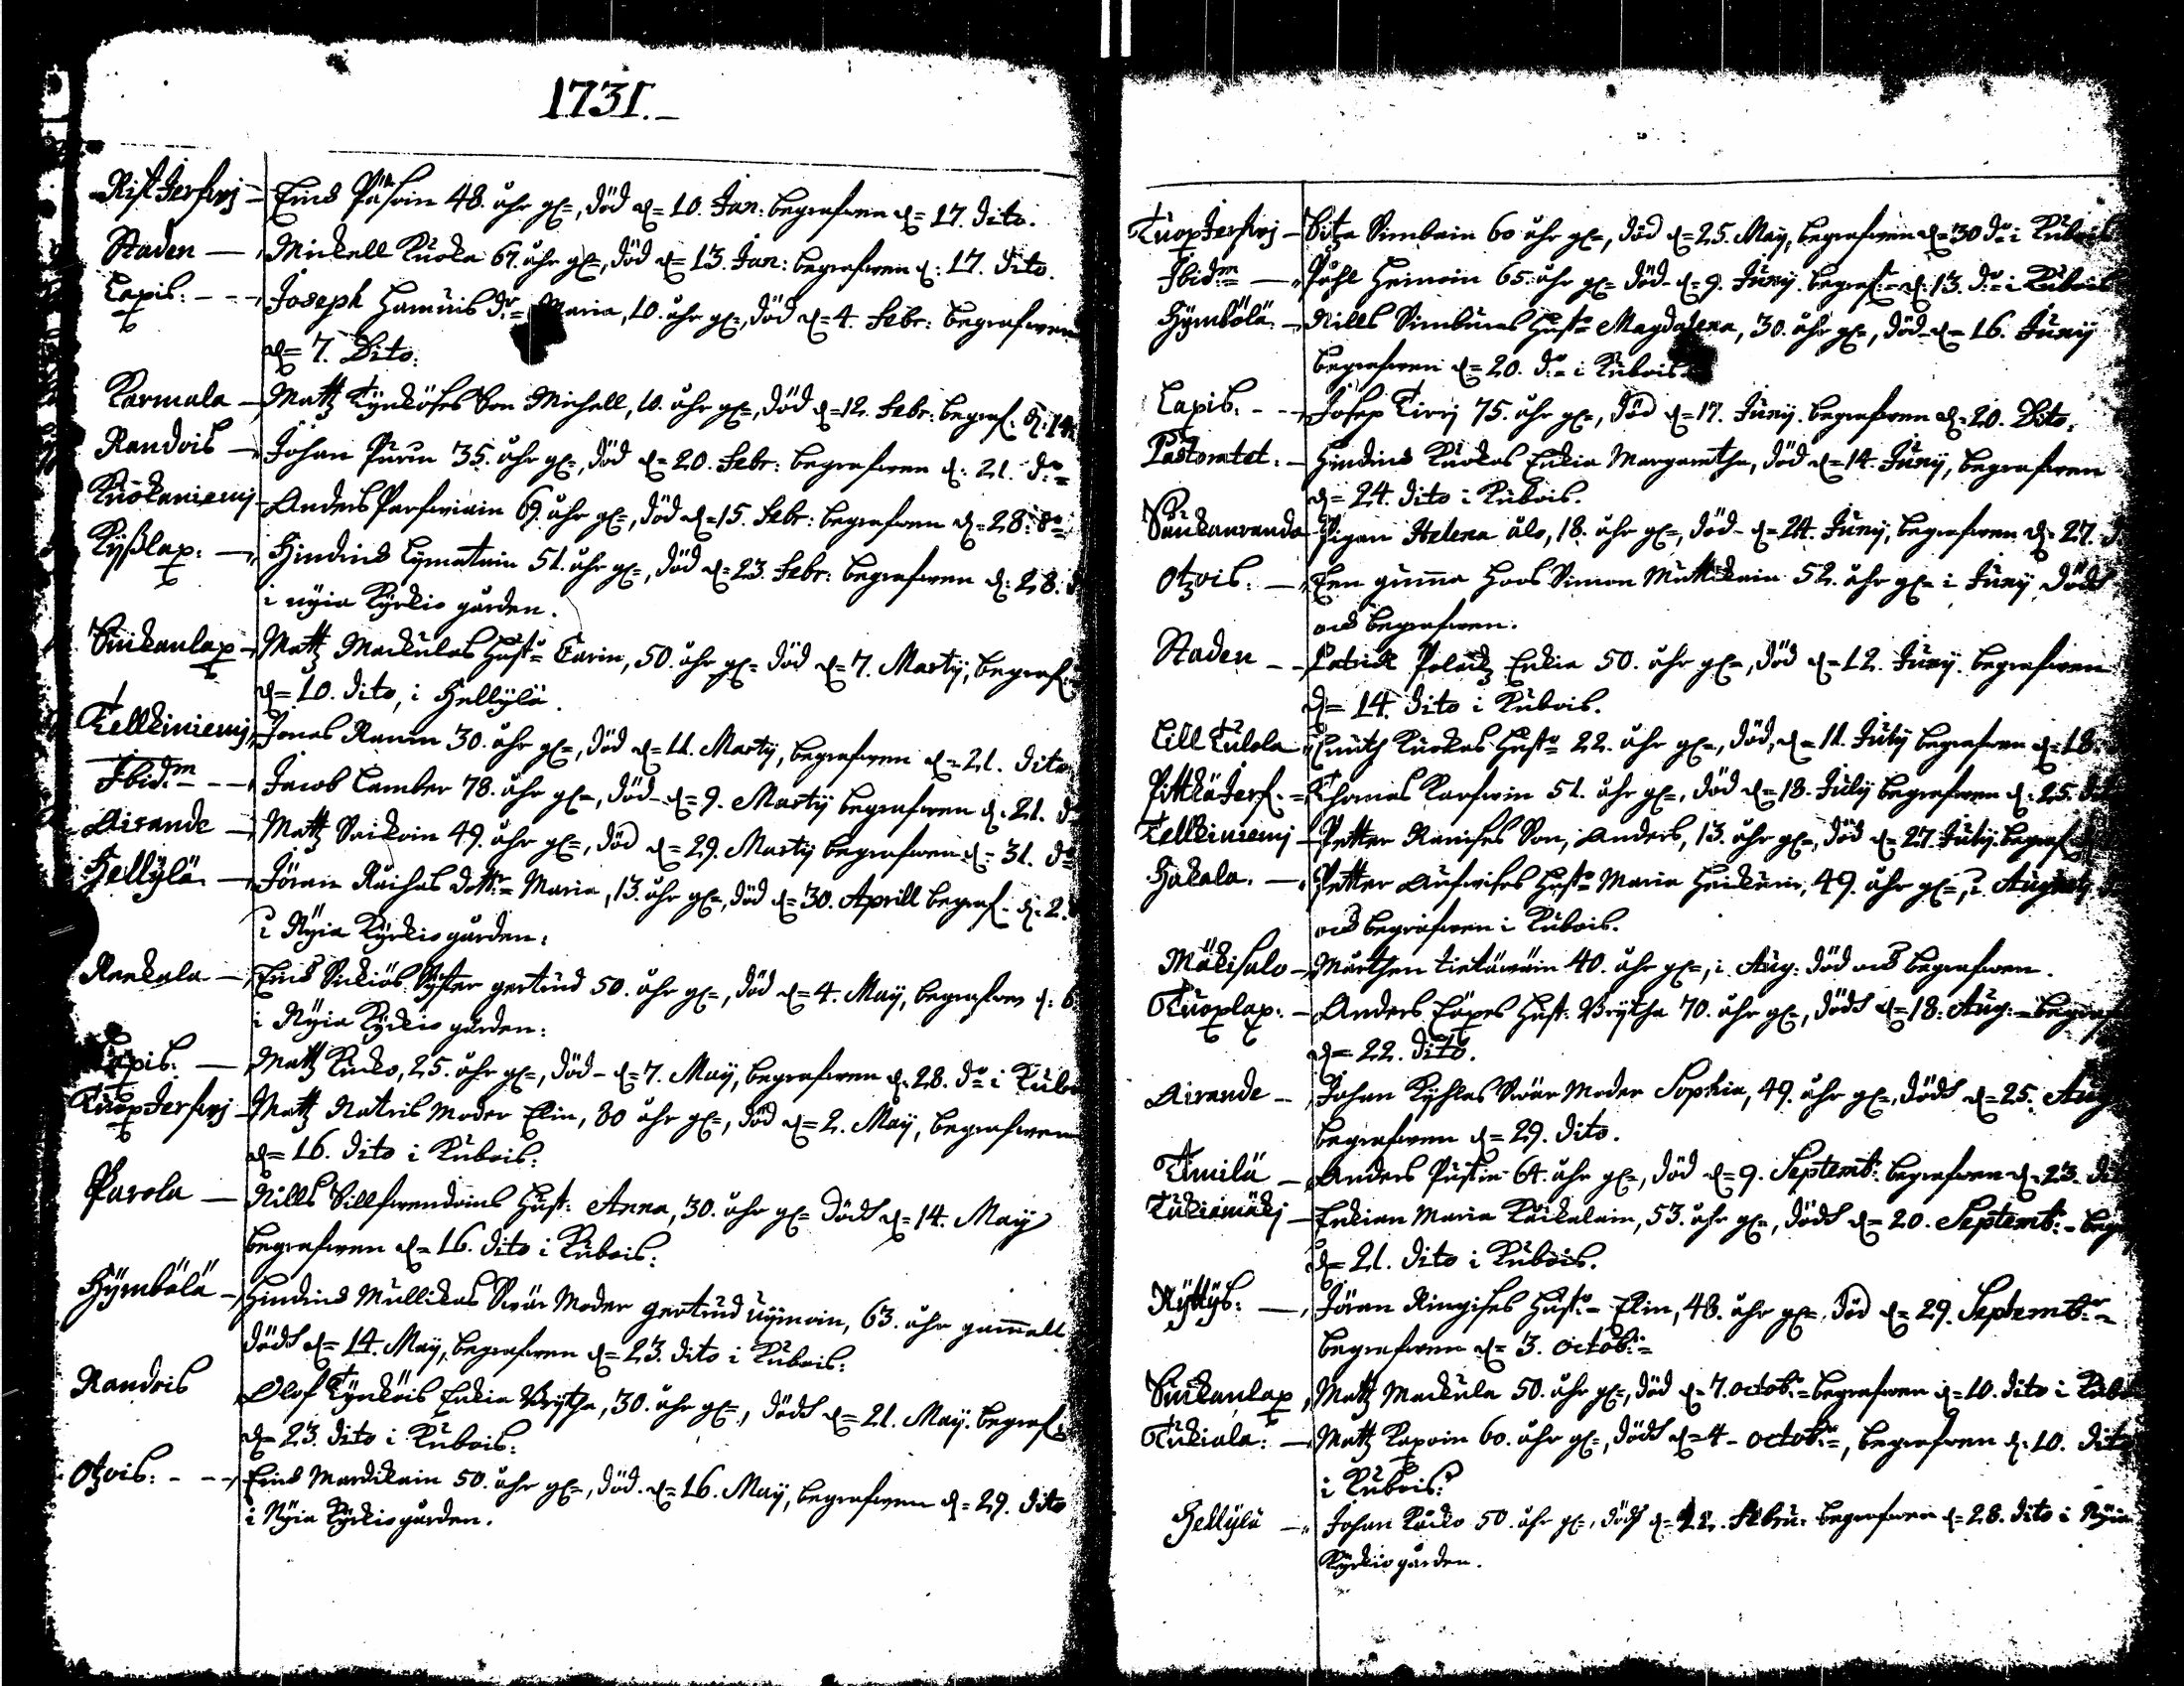 1731.
Ristjerfwj - Erics Päiwin 48. åhr gl=, död d= 10. Jan: begrafwen d= 17. dito.
Staden - Mickell Kuoka 67. åhr gl=, död d= 13. Jan: begrafwen d: 17. dito.
Lexis: - Joseph Hamuis dr= Maria, 10. åhr gl=, död d= 4. Febr: begrafwen
d= 7. Dito:
Karmala - Mattz Kynköses Son Michell, 10. åhr gl=, död d= 12. Febr: begraf: d: 14.
Randois - Johan Purin 35. åhr gl=, död d= 20. Febr: begrafwen d: 21. do=
Kuokaniemj - Anders Parfwiain 69. åhr gl=, död d= 15. Febr: begrafwen d= 28: do=
Kyßlax: - Hindrics Lymatain 51. åhr gl=, död d= 23. Febr: begrafwen d: 28.
i nyia Kyrkio gården.
Suikanlax - Mattz Mackulas Hust= Carin, 50. åhr gl= död d= 7. Martij, begraf:
d= 10. dito, i Hellylä.
Tellkiniemj, Jonas Ranin 30. åhr gl=, död d= 11. Martij, begrafwen d= 21. dito
Ibidm= - Jacob Camber 78. åhr gl=, död d= 9. Martij begrafwen d. 21. d
Airande - Mattz Saikoin 49. åhr gl=, död d= 29. Martij begrafwen d= 31. do
Hellylä - Jöran Räihas dottr= Maria, 13. åhr gl=, död d= 30. Aprill begraf. d. 2.
i Nyia Kyrkio gården:
Rankala - Erics Sickiös Syster gertrud 50. åhr gl=, död d= 4. Maÿ, begrafwen d: 6
i Nyia Kyrkio gården:
Lexis. - Mattz Kucko, 25. åhr gl=, död d= 7. Maÿ, begrafwen d. 28. do i Kubois
Kuoxjerfwj - Mattz Natris moder Elin, 80 åhr gl=, död d= 2. Maÿ, begrafwen
d= 16. dito i Kubois:
Parola - Nills Sillfwendoins Hust: Anna, 30. åhr gl= död d= 14. Maÿ
begrafwen d= 16. dito i Kubois:
Hymbölä - Hindrics Mullikas Swär Moder gertrud uymoin, 63. åhr gammall
död d= 14. Maÿ, begrafwen d= 23. dito i Kubois:
Randois Olof Tynköis Enkia Brytha, 30. åhr gl=, död d= 21. Maÿ. begraf:
d= 23. dito i Kubois:
Otzois: - Erics Mardikain 50. åhr gl=, död. d= 16. Maÿ, begrafwen d= 29. dito
i Nyia Kyrkio gården.
Kuoxjerfwj - Sita Simbain 60 åhr gl=, död d= 25. Maÿ, begrafwen d= 30 do= i Kubois
Ibidm= - Påhl Heinoin 65. åhr gl= död d= 9. Junÿ. begraf:= d: 13. do= i Kubois
Hymbölä: - Nills Simbuins Hust= Magdalena, 30. åhr gl=, död d= 16. Junÿ
begrafwen d= 20. do= i Kubois
Lapis: - Josep Kirrj 75. åhr gl=, död d= 17. Junÿ. begrafwen d= 20. Dito.
Pastoratet: - Hindrics Kuokas Enkia Margaretha, död d= 14. Junÿ, begrafwen
d= 24. dito i Kubois.
Suikanranda - Pigan Helena Alo, 18. åhr gl=, död d= 24. Junÿ, begrafwen d. 27.
Otzois: - Een gumma hoos Simon Muttikain 52. åhr gl= i Junÿ död
och begrafwen.
Staden - Patrick Polackz Enkia 50. åhr gl=, död d= 12. Junÿ. begrafwen
d= 14. dito i Kubois.
Lill Tulola - Knuth Kuokas Hust= 22. åhr gl=, död, d= 11. July begrafwen d= 18.
Pittkäjerf. - Thomas Karfwin 51. åhr gl=, död d= 18. July begrafwen d. 25. dito
Tellkiniemj - Petter Ranises Son, Anders, 13. åhr gl=, död d= 27. July. begraf
Hakala. - Petter Aufwises Hust= Maria Heikuin, 49. åhr gl=, i Augusti
och begrafwen i Kubois.
Mäkisalo - Mårthen tietäwäin 40. åhr gl=, i Aug: död och begrafwen.
Kuoxlax: - Anders Läxes Hust: Brytha 70. åhr gl=, död d= 18: Aug:= begraf
d= 22. dito.
Airande - Johan Kyhlas Swär Moder Sophia, 49. åhr gl=, död d= 25. Aug
begrafwen d= 29. dito.
Tämilä - Anders Pustin 64. åhr gl=, död d= 9. Septemb:r begrafwen d= 23. di
Tukiamäkj - Enkian Maria Käikalain, 53. åhr gl=, död d= 20. Septemb:r= begr
d= 21. dito i Kubois.
Nyttys: - Jöran Ringises Hust:= Elin, 48. åhr gl=, död d= 29. Septemb:r=
begrafwen d= 3. octob:r=
Suikanlax, Mattz Mackula 50. åhr gl=, död d= 7. octob:r= begrafwen d= 10. dito i Kubois
Tukiala: - Mattz Kaxoin 60. åhr gl=, död d= 4 - octob:r=, begrafwen d. 10. dito
i Kubois:
Hellylä - Johan Kucko 50. åhr gl=, död d= 22. Febru: begrafwen d= 28. dito i Nyia
Kyrkio gården.